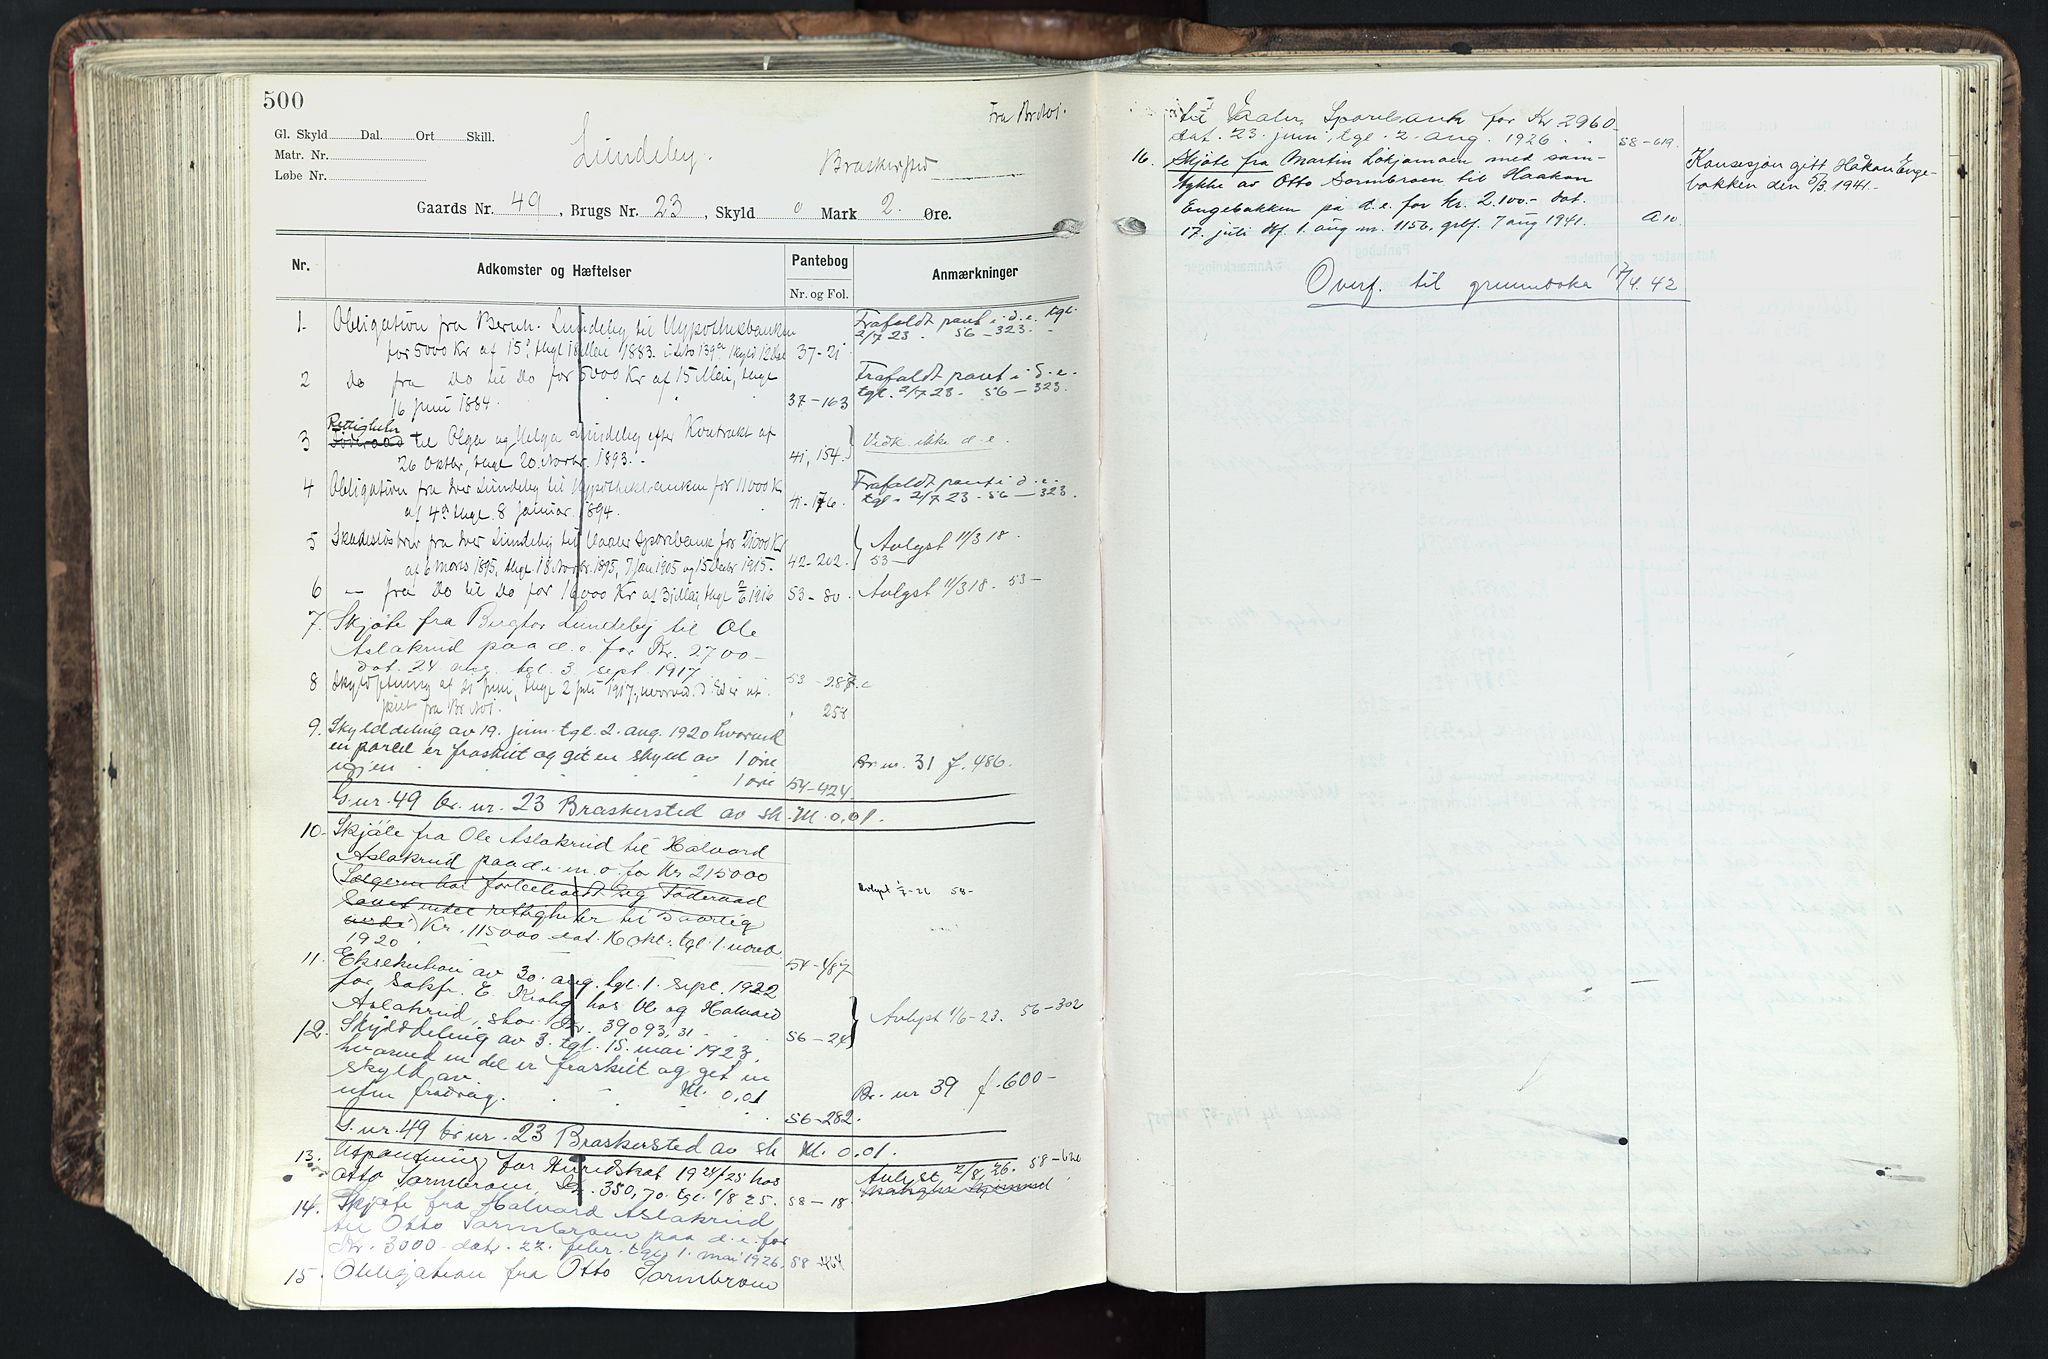 500
Fra Br.No 1.
Gl. Skyld Dal. Ort Skill.
Matr. Nr.
Løbe Nr.
Lundeby.
Braskersted
Gaards Nr. 49, Brugs Nr. 23, Skyld 0 Mark 2 Øre.
Nr. Adkomster og Hæftelser Pantebog Anmærkninger
Nr. og Fol.
1. Obligation fra Bernh. Lundeby til Hypothekbanken Frafaldt pant i d.e. tgl.
for 5000 Kr af 15, thgl 18 Mai 1883. 37-21 2/7 23. 56-323.
2 Do fra Do til Do for 5000 Kr af 15 Mai, thgl Frafaldt pant i d.e.
16 Juni 1884. 37-163 tgl. 2/7 23. 56-323.
Rettigheder
3 Föderaad til Olga og Helga Lundeby efter Kontrakt af Vedk. ikke d.e.
26 Oktbr, thgl 20 Novbr. 1893. 41, 154
4 Obligation fra Iver Lundeby til Hypothekbanken for 11000 Kr Frafaldt pant i d.e.
af 4de thgl. 8 Januar 1894. 41-176 tgl. 2/7 23. 56-323.
5 Skadesløsbrev fra Iver Lundeby til Vaaler Sparebank for 21000 Kr Avlyst 11/3 18.
af 6 Marts 1895, thgl 18 Novbr. 1895, 7 Jan 1905 og 15 Decbr 1915. 42-202. 53-
6 — fra Do til Do for 16000 Kr af 31 Mai, thgl 2/6 1916 53-80. Avlyst 11/3 18. 53-
7. Skjøte fra Bergtor Lundeby til Ole
Aslakrud paa d.e. for Kr. 2700-
dat. 24 aug. tgl. 3 sept 1917 53-287
8 Skylddeling af 21 Juni, thgl 2 Juli 1917, hvorved d. Ed. er ud-
skilt fra Br No 1. 258
9. Skylddeling av 19. juni tgl. 2. aug. 1920 hvorved
en parcel er fraskilt og git en skyld av 1 øre Br. nr. 31 f. 486.
igjen 1 øre 54-424.
G. nr. 49 br. nr. 23 Braskersted av sk. M. 0,01.
10. Skjøte fra Ole Aslakrud til Halvard
Aslakrud paa d.e. m. o. for Kr 215000
(Sælgeren har forbeholdt seg Föderaad Avlyst 1/7-26 58-
samt andre rettigheter til 5 aarlig
verdi) Kr. 115000 dat. 16 okt. tgl. 1. novb.
1920 54-487
11. Eksekution av 30. aug. tgl. 1. sept. 1922
for Sakfr. E. Krohg hos Ole og Halvard
Aslakrud, stor Kr. 39093,31. 56-24 Avlyst 1/6-23. 56-302
12. Skylddeling av 3. tgl. 15. mai 1923,
hvorved en del er fraskilt og get en
skyld av M. 0,01 Br. nr 39 f. 600-
uten fradrag. 56-282.
G. nr. 49 br. nr. 23 Braskersted av sk M. 0,01.
13. Utpantning for Herredskat 1924/25 hos Avlyst 2/8 26. 58-620
Otto Sormbroen, Kr. 350,70. tgl. 1/8 25. 58-18
14. Skjøte fra Halvard Aslakrud
til Otto Sormbroen paa d.e. for
Kr. 3000- datr. 22. febr. tgl. 1. mai 1926. 58-
15. Obligation fra Otto Sormbroen
til Vaaler Sparebank for Kr 2960-
dat. 23. juni, tgl. 2. aug. 1926. 58-619.
16. Skjøte fra Martin Løkjamoen med sam- Konsesjon gitt Håkon Enge-
tykke av Otto Sormbroen til Haakon bakken den 5/3 1941.-
Engebakken på d.e. for kr. 2.100.- dat.
17. juli tgl. 1. aug nr. 1156, grbf. 7 aug 1941. A 10
Overf. til grunnboka 7/4. 42